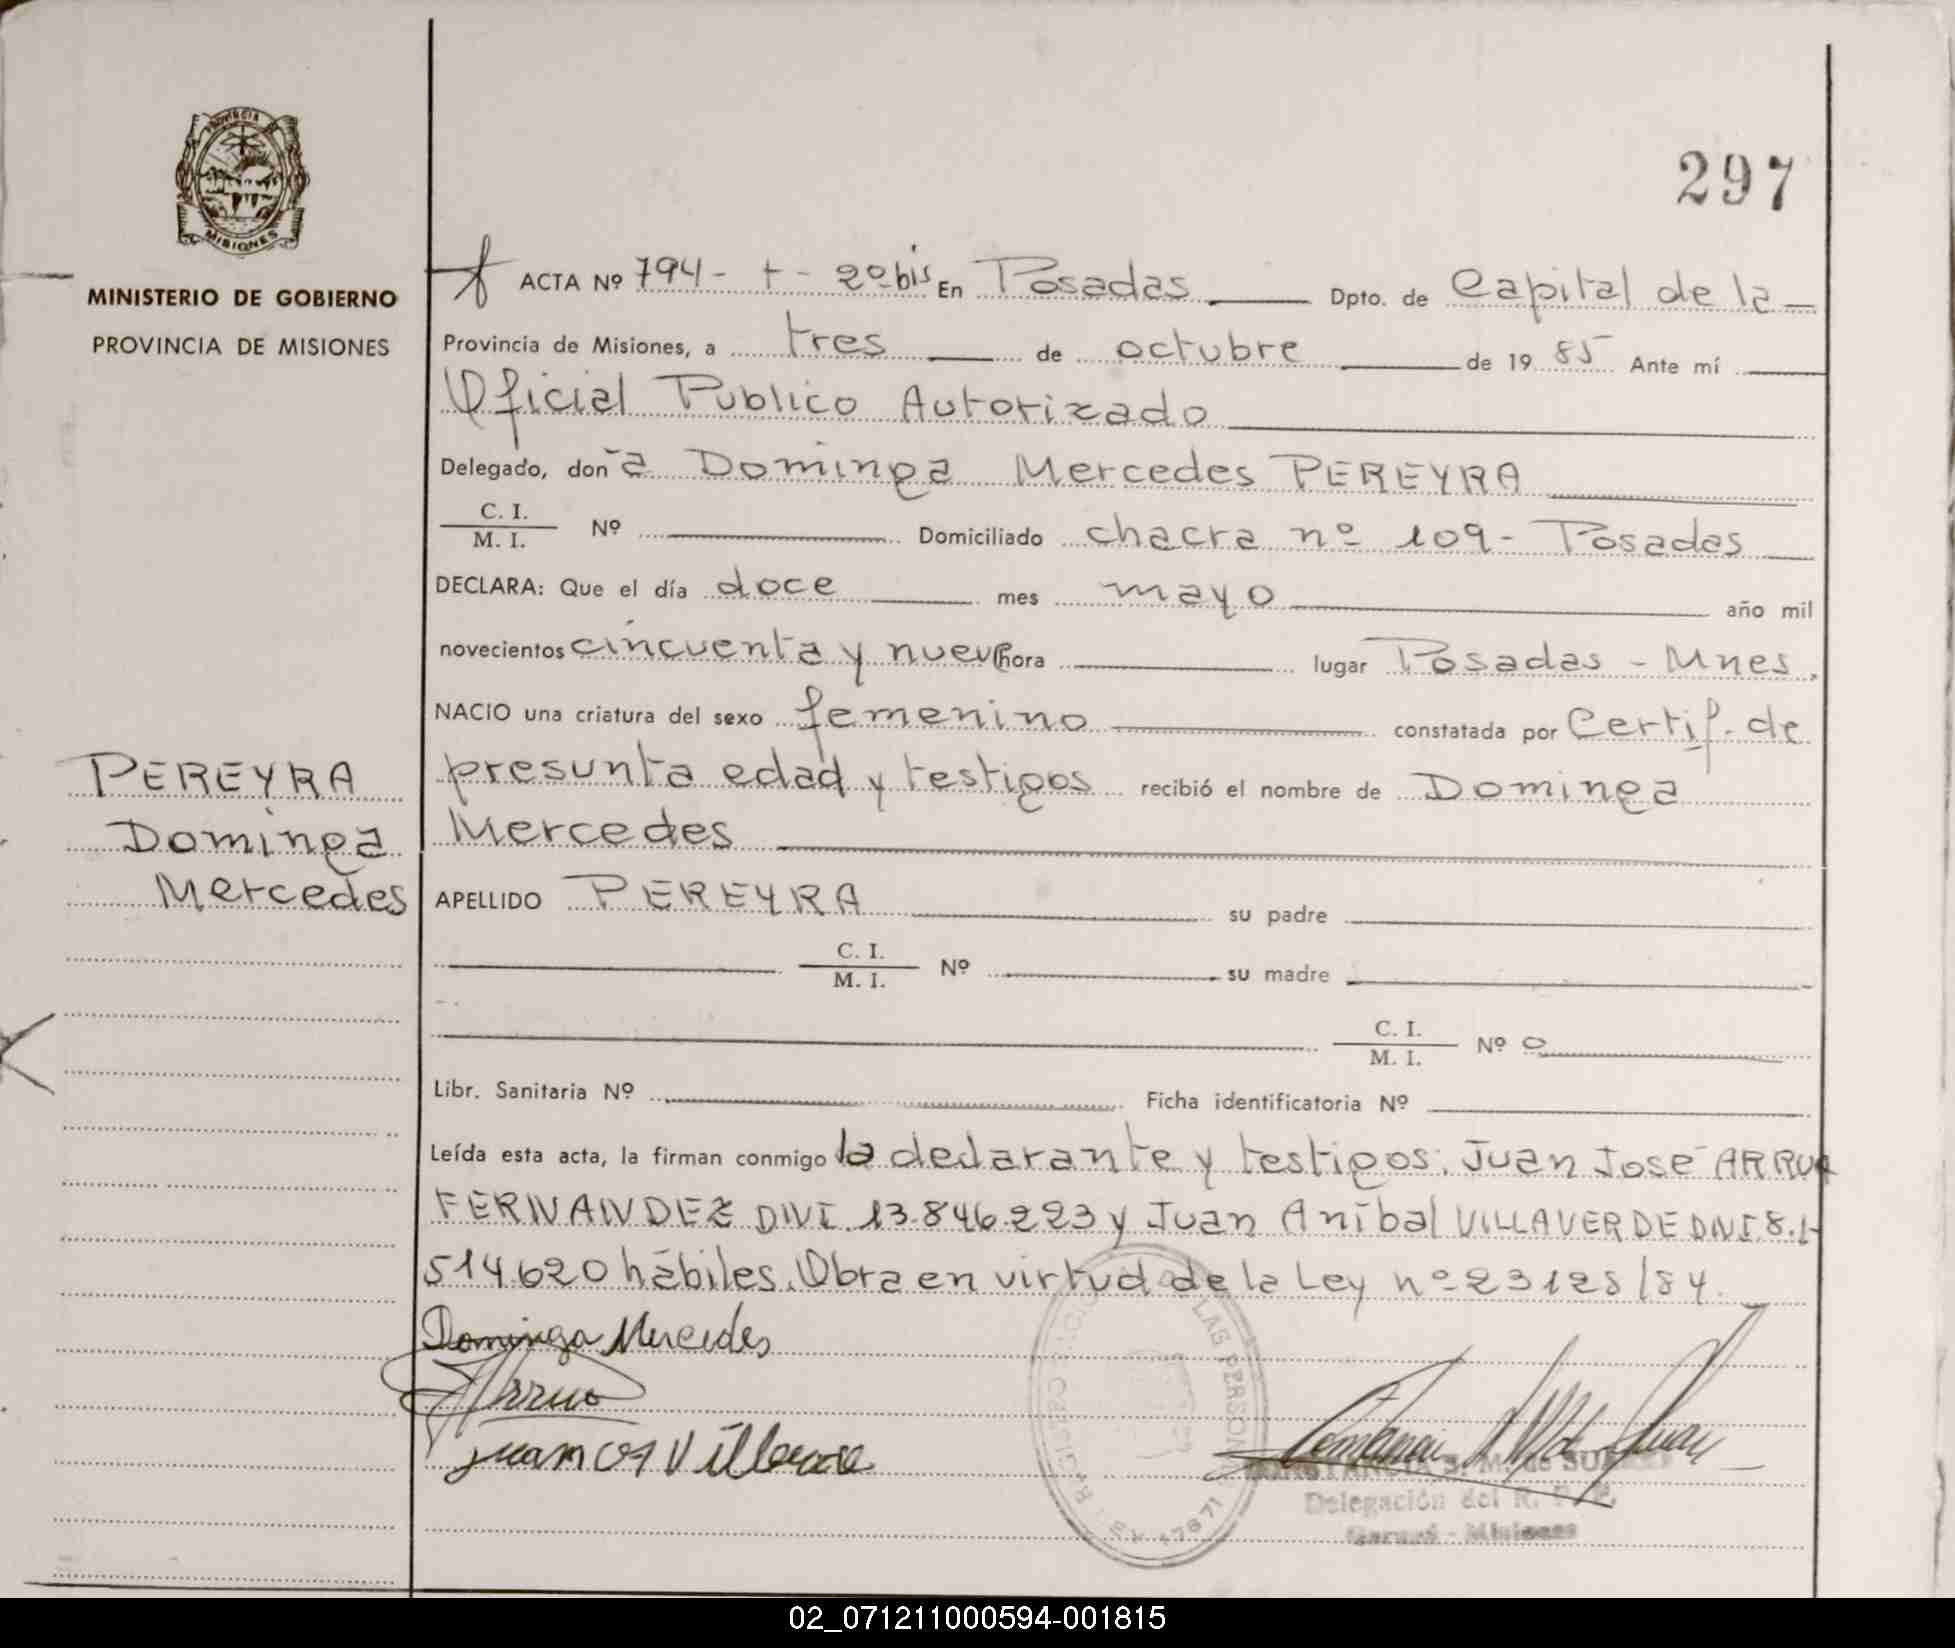 PROVINCIA DE
MISIONES
MINISTERIO DE GOBIERNO
PROVINCIA DE MISIONES
297
ACTA Nº 794 - t - 2º bis En Posadas Dpto. de Capital de la
Provincia de Misiones, a tres de octubre de 1985 Ante mí
Oficial Publico Autorizado
Delegado, doña Dominga Mercedes PEREYRA
C. I.
M. I. Nº Domiciliado chacra nº 109 - Posadas
DECLARA: Que el día doce mes mayo año mil
novecientos cincuenta y nueve hora lugar Posadas - Mnes.
NACIO una criatura del sexo femenino constatada por Certif. de
presunta edad y testigos recibió el nombre de Dominga
Mercedes
PEREYRA
Dominga
Mercedes
APELLIDO PEREYRA su padre
C. I.
M. I. Nº su madre
C. I.
M. I. Nº 0
Libr. Sanitaria Nº Ficha identificatoria Nº
Leída esta acta, la firman conmigo la declarante y testigos: Juan José ARRUA
FERNANDEZ DNI. 13.846.223 y Juan Aníbal VILLAVERDE DNI 8.1-
514.620 hábiles. Obra en virtud de la Ley nº 23128/84.
Dominga Mercedes
Arrua
Juan Villaverde
REGISTRO LAS PERSONAS
LEY 17671
CONSTANCIA S. M. de SU
Delegación del R. P. P.
Garupá - Misiones
02_071211000594-001815